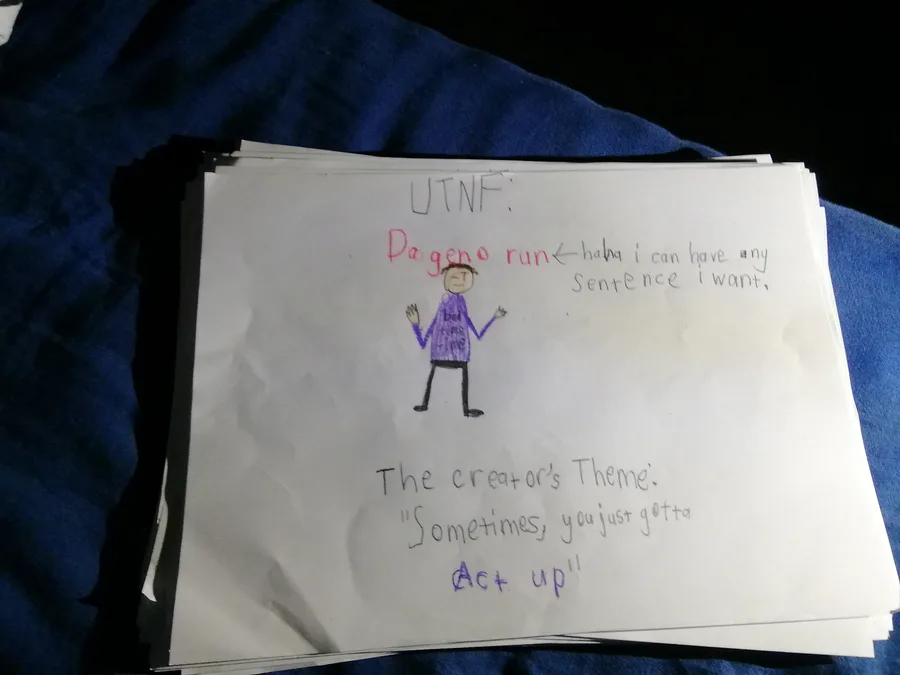 UTNF:
Dageno run ← haha i can have any
sentence i want.
bad
time
The creator's Theme:
"Sometimes, you just gotta
Act up"